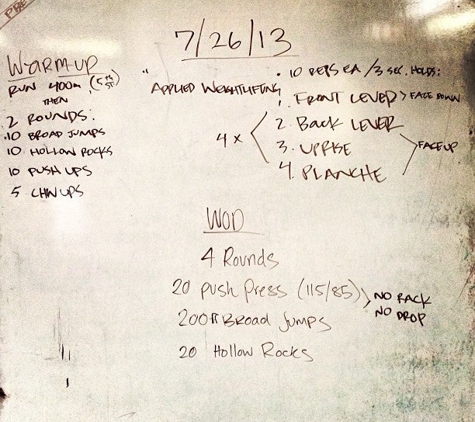 PRE
7/26/13
WARM-UP
RUN 400m (5th ST)
THEN
2 ROUNDS:
10 BROAD JUMPS
10 HOLLOW ROCKS
10 PUSH UPS
5 CHIN UPS
" APPLIED WEIGHTLIFTING
• 10 REPS EA /3 SEC. HOLDS:
4 x
1. FRONT LEVER > FACE DOWN
2. BACK LEVER
3. UPRISE
4. PLANCHE
FACE UP
WOD
4 Rounds
20 PUSH PRESS (115/85)
200ft BROAD JUMPS
NO RACK
NO DROP
20 HOLLOW ROCKS